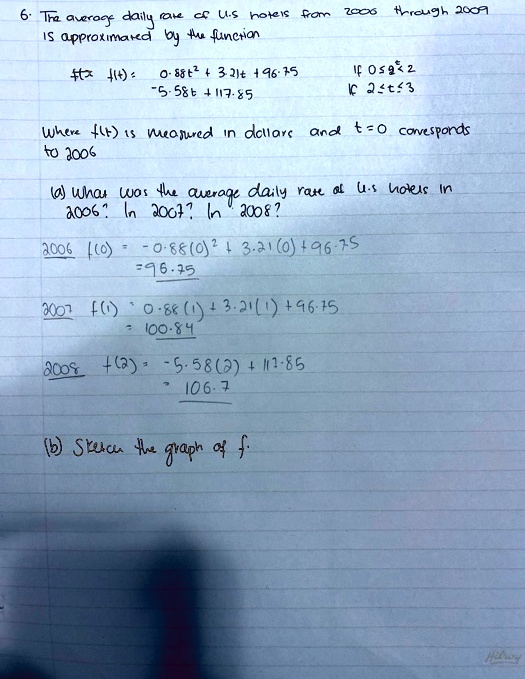 6. The average daily rate of U.S hotels from 2006 through 2009
is approximated by the function
f(t) = 0.88t² + 3.21t + 96.75 If 0≤t<2
-5.58t + 117.85 If 2≤t≤3
Where f(t) is measured in dollars and t=0 corresponds
to 2006
(a) What was the average daily rate of U.S hotels in
2006? In 2007? In 2008?
2006 f(0) = -0.88(0)² + 3.21(0) + 96.75
= 96.75
2007 f(1) = 0.88(1) + 3.21(1) + 96.75
= 100.84
2008 f(2) = -5.58(2) + 117.85
= 106.7
(b) Sketch the graph of f.
Hilroy